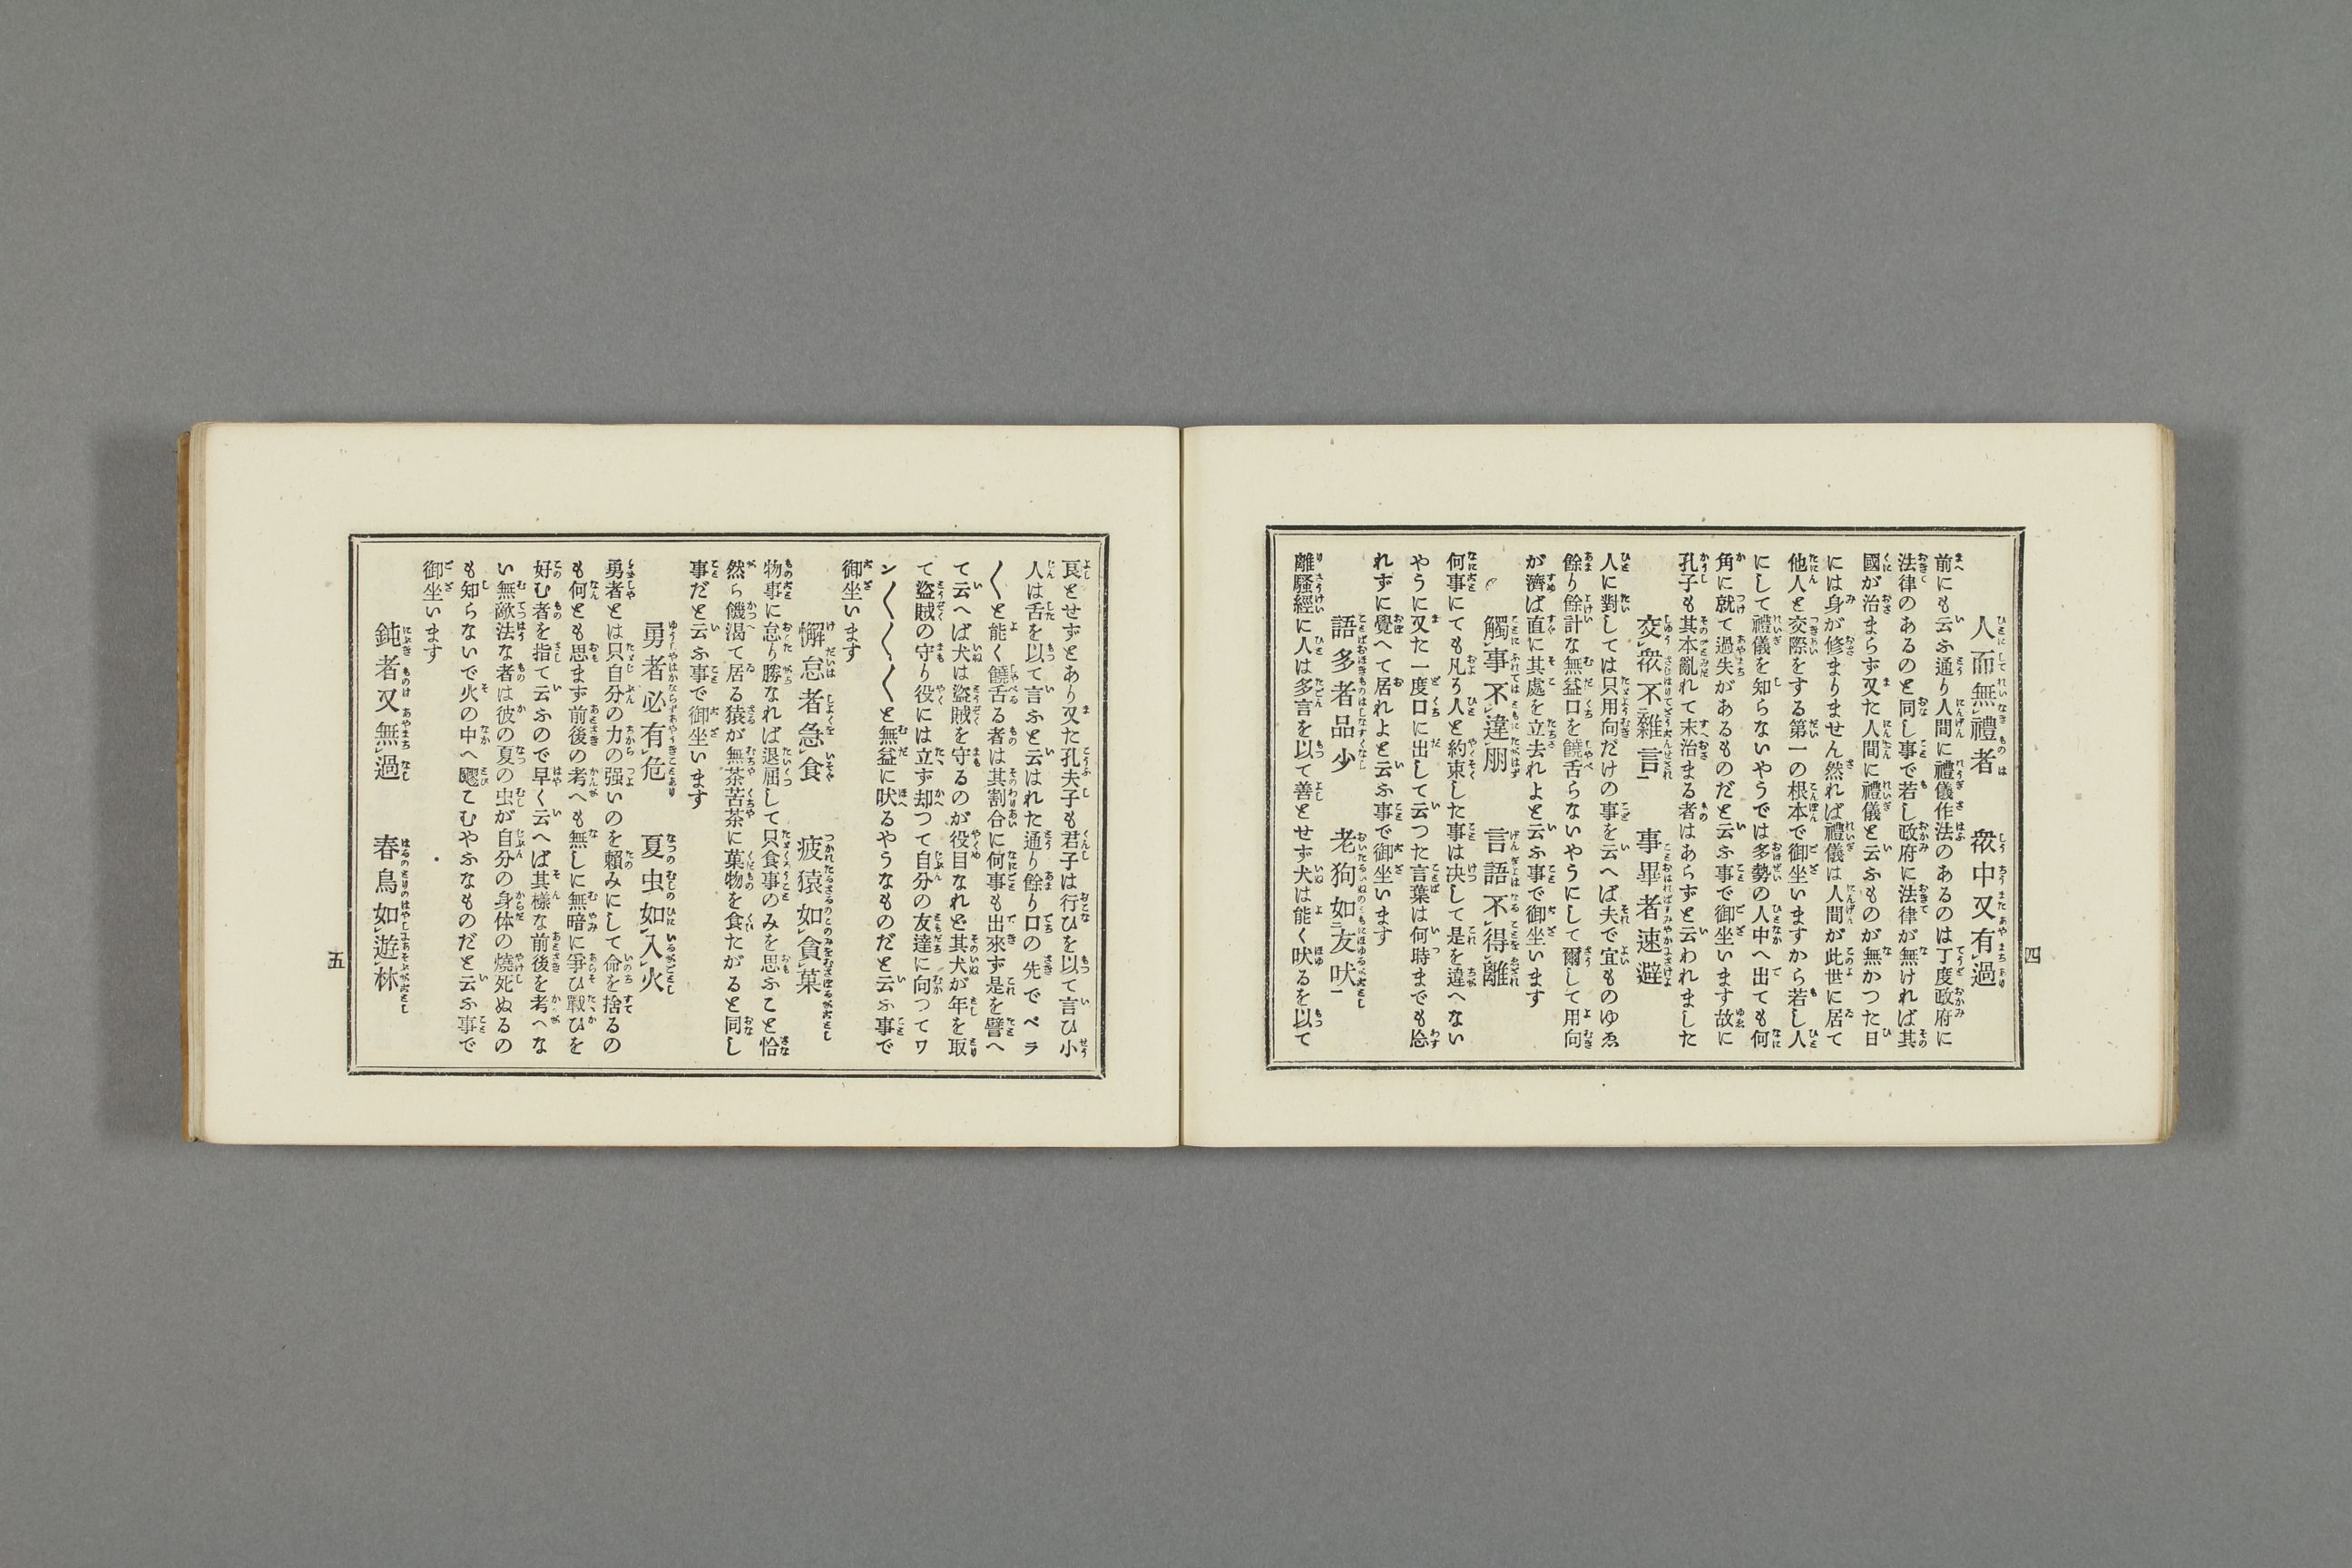 四
人而無禮者　衆中又有過
前にも云ふ通り人間に禮儀作法のあるのは丁度政府に
法律のあるのと同し事で若し政府に法律が無ければ其
國が治まらず又た人間に禮儀と云ふものが無かつた日
には身が修まりません然れば禮儀は人間が此世に居て
他人と交際をする第一の根本で御坐いますから若し人
にして禮儀を知らないやうでは多勢の人中へ出ても何
角に就て過失があるものだと云ふ事で御坐います故に
孔子も其本亂れて末治まる者はあらずと云われました
交衆不雜言　事畢者速避
人に對しては只用向だけの事を云へば夫で宜ものゆゑ
餘り餘計な無益口を饒舌らないやうにして爾して用向
が濟ば直に其處を立去れよと云ふ事で御坐います
觸事不違朋　言語不得離
何事にても凡ろ人と約束した事は决して是を違へない
やうに又た一度口に出して云つた言葉は何時までも忘
れずに覺へて居れよと云ふ事で御坐います
語多者品少　老狗如友吠
離騷經に人は多言を以て善とせず犬は能く吠るを以て
良とせずとあり又た孔夫子も君子は行ひを以て言ひ小
人は舌を以て言ふと云はれた通り餘り口の先でペラ
〱と能く饒舌る者は其割合に何事も出來ず是を譬へ
て云へば犬は盜賊を守るのが役目なれと其犬が年を取
て盜賊の守り役には立ず却つて自分の友達に向つてワ
ン〱〱〱と無益に吠るやうなものだと云ふ事で
御坐います
懈怠者急食　疲猿如貪菓
物事に怠り勝なれば退屈して只食事のみを思ふこと恰
然ら饑渴て居る猿が無茶苦茶に菓物を食たがると同し
事だと云ふ事で御坐います
勇者必有危　夏虫如入火
勇者とは只自分の力の强いのを賴みにして命を捨るの
も何とも思ます前後の考へも無しに無暗に爭ひ戰ひを
好む者を指て云ふので早く云へば其樣な前後を考へな
い無敵法な者は彼の夏の虫が自分の身体の燒死ぬるの
も知らないで火の中へ飜こむやふなものだと云ふ事で
御坐います
鈍者又無過　春鳥如遊林
五